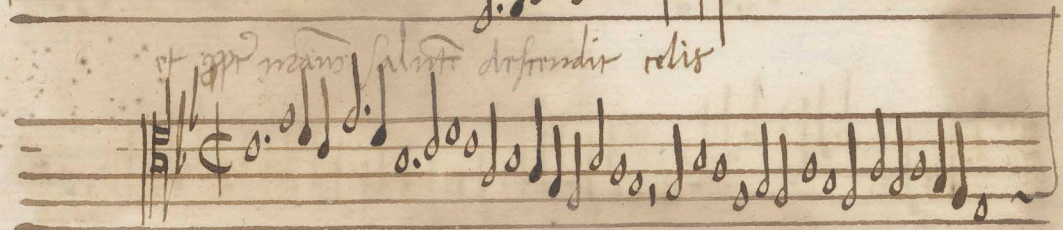 et ꝓpt̄ nr̄am̄ salut̄e descendit celis